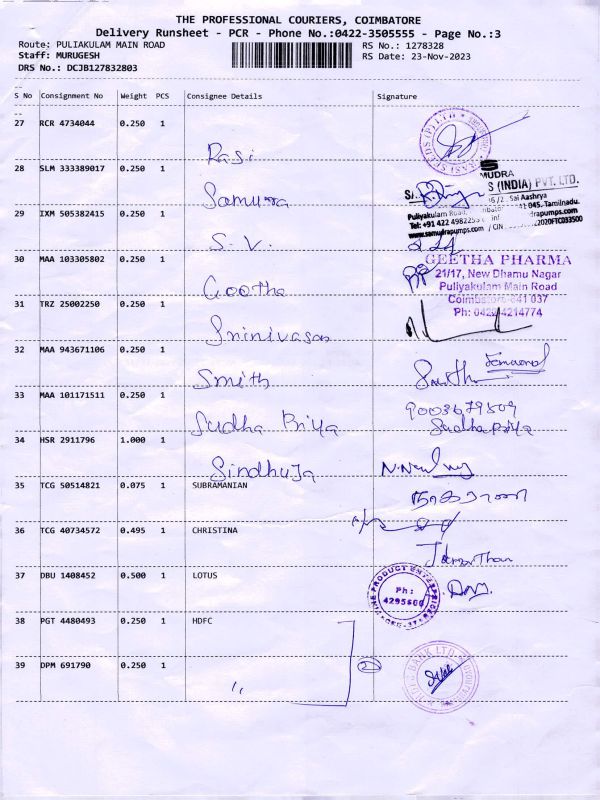 THE PROFESSIONAL COURIERS, COIMBATORE
Delivery Runsheet - PCR - Phone No.:0422-3505555 - Page No.:3
Route: PULIAKULAM MAIN ROAD RS No.: 1278328
Staff: MURUGESH RS Date: 23-Nov-2023
DRS No.: DCJB127832803
S No Consignment No Weight PCS Consignee Details Signature
27 RCR 4734044 0.250 1
Rasi
28 SLM 333389017 0.250 1
MUDRA
S (INDIA) PVT. LTD.
Samudra
Sai Aashrya
29 IXM 505382415 0.250 1
Puliyakulam Road, 045. Tamilnadu.
Tel: +91 422 4982255
www.samudrapumps.com / CIN
S.V.
30 MAA 103305802 0.250 1
GEETHA PHARMA
21/17, New Dhamu Nagar
Puliyakulam Main Road
Geetha
Coimbatore-641 037
31 TRZ 25002250 0.250 1
Ph: 0422-4214774
Srinivasan
32 MAA 943671106 0.250 1
Smith
33 MAA 101171511 0.250 1
9003679509
Sudha Priya Sudhapriya
34 HSR 2911796 1.000 1
Sindhuja
35 TCG 50514821 0.075 1 SUBRAMANIAN
36 TCG 40734572 0.495 1 CHRISTINA
37 DBU 1408452 0.500 1 LOTUS
Ph:
4295600
38 PGT 4480493 0.250 1 HDFC
39 DPM 691790 0.250 1
2
BANK LTD